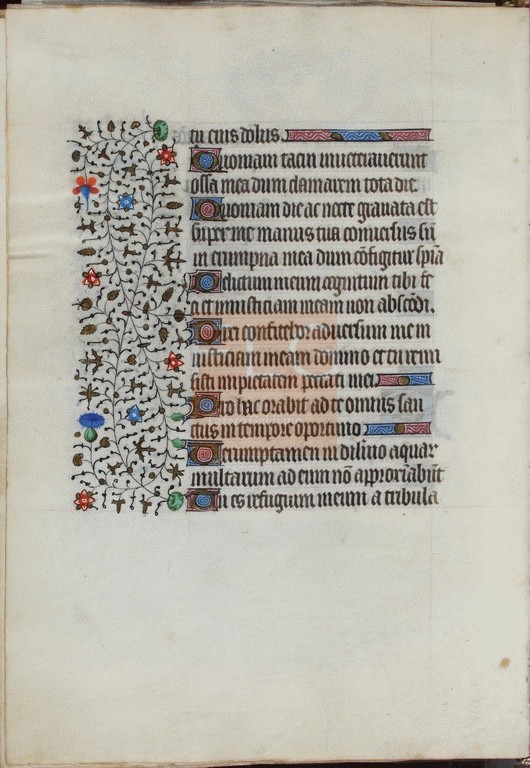 tu eius dolus.
Quoniam tacui inueterauerunt
ossa mea dum clamarem tota die.
Quoniam die ac nocte grauata est
super me manus tua conuersus sū
in erumpna mea dum cōfigitur spīa
Delictum meum cognitum tibi fe
ci et iniusticiam meam non abscōdi.
Dixi confitebor aduersum me in
iusticiam meam domino et tu remi
sisti impietatem peccati mei.
Pro hac orabit ad te omnis san
ctus in tempore oportuno
Verumptamen in diluuio aquar
multarum ad eum nō approxīabūt
Tu es refugium meum a tribula